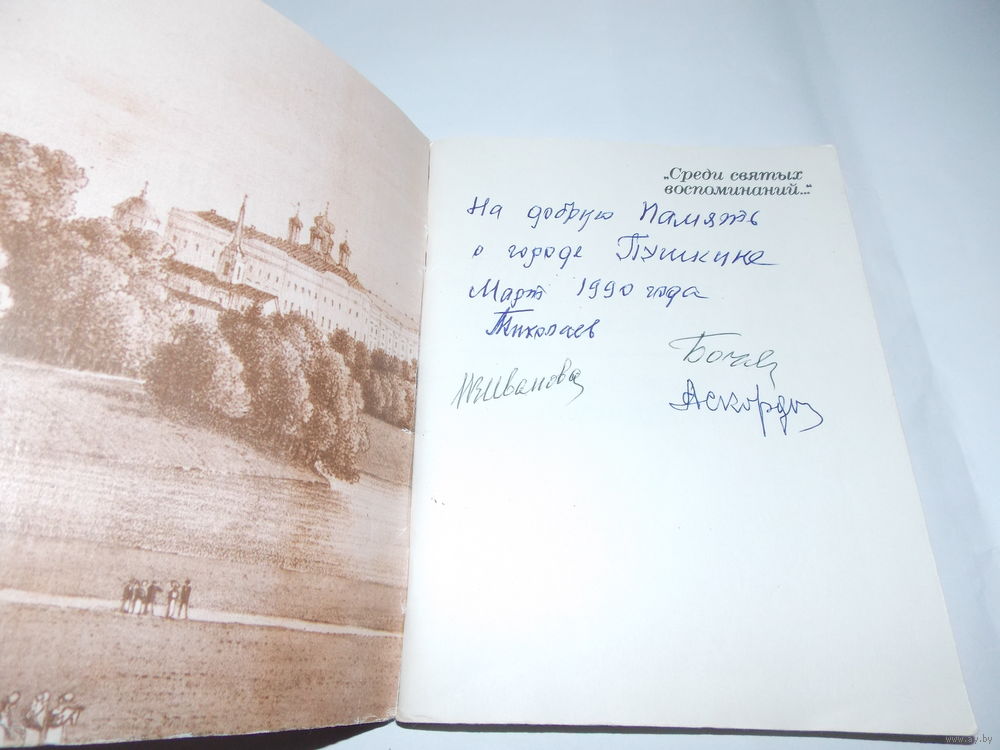 „Среди святых
воспоминаний..."
На добрую память
о городе Пушкине
Март 1990 года
Николаев
Иванова
www.ay.by